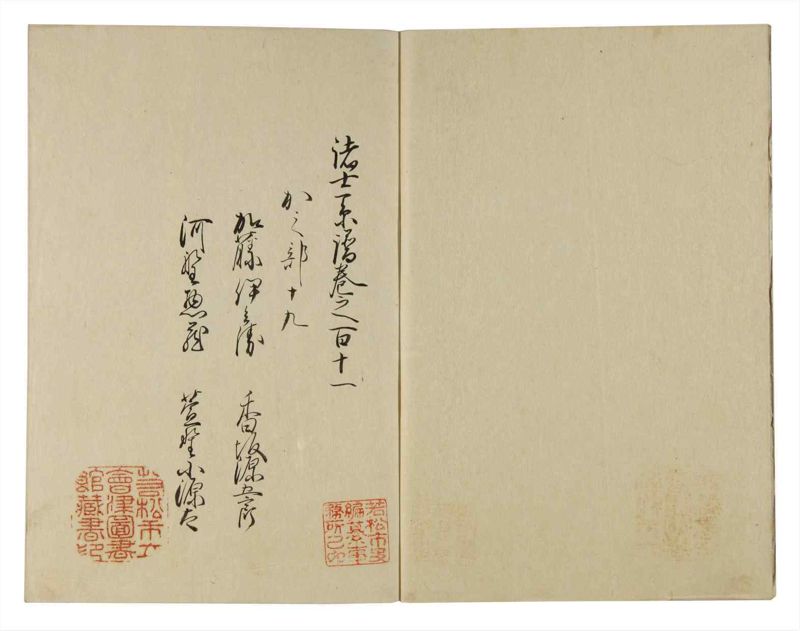 諸士系譜巻之百十一
か之部十九
加藤伊兵衛 香坂源五郎
河野 萱野小源太
若松市立
會津圖書
館藏書印
若松市史
編纂事
務所之印